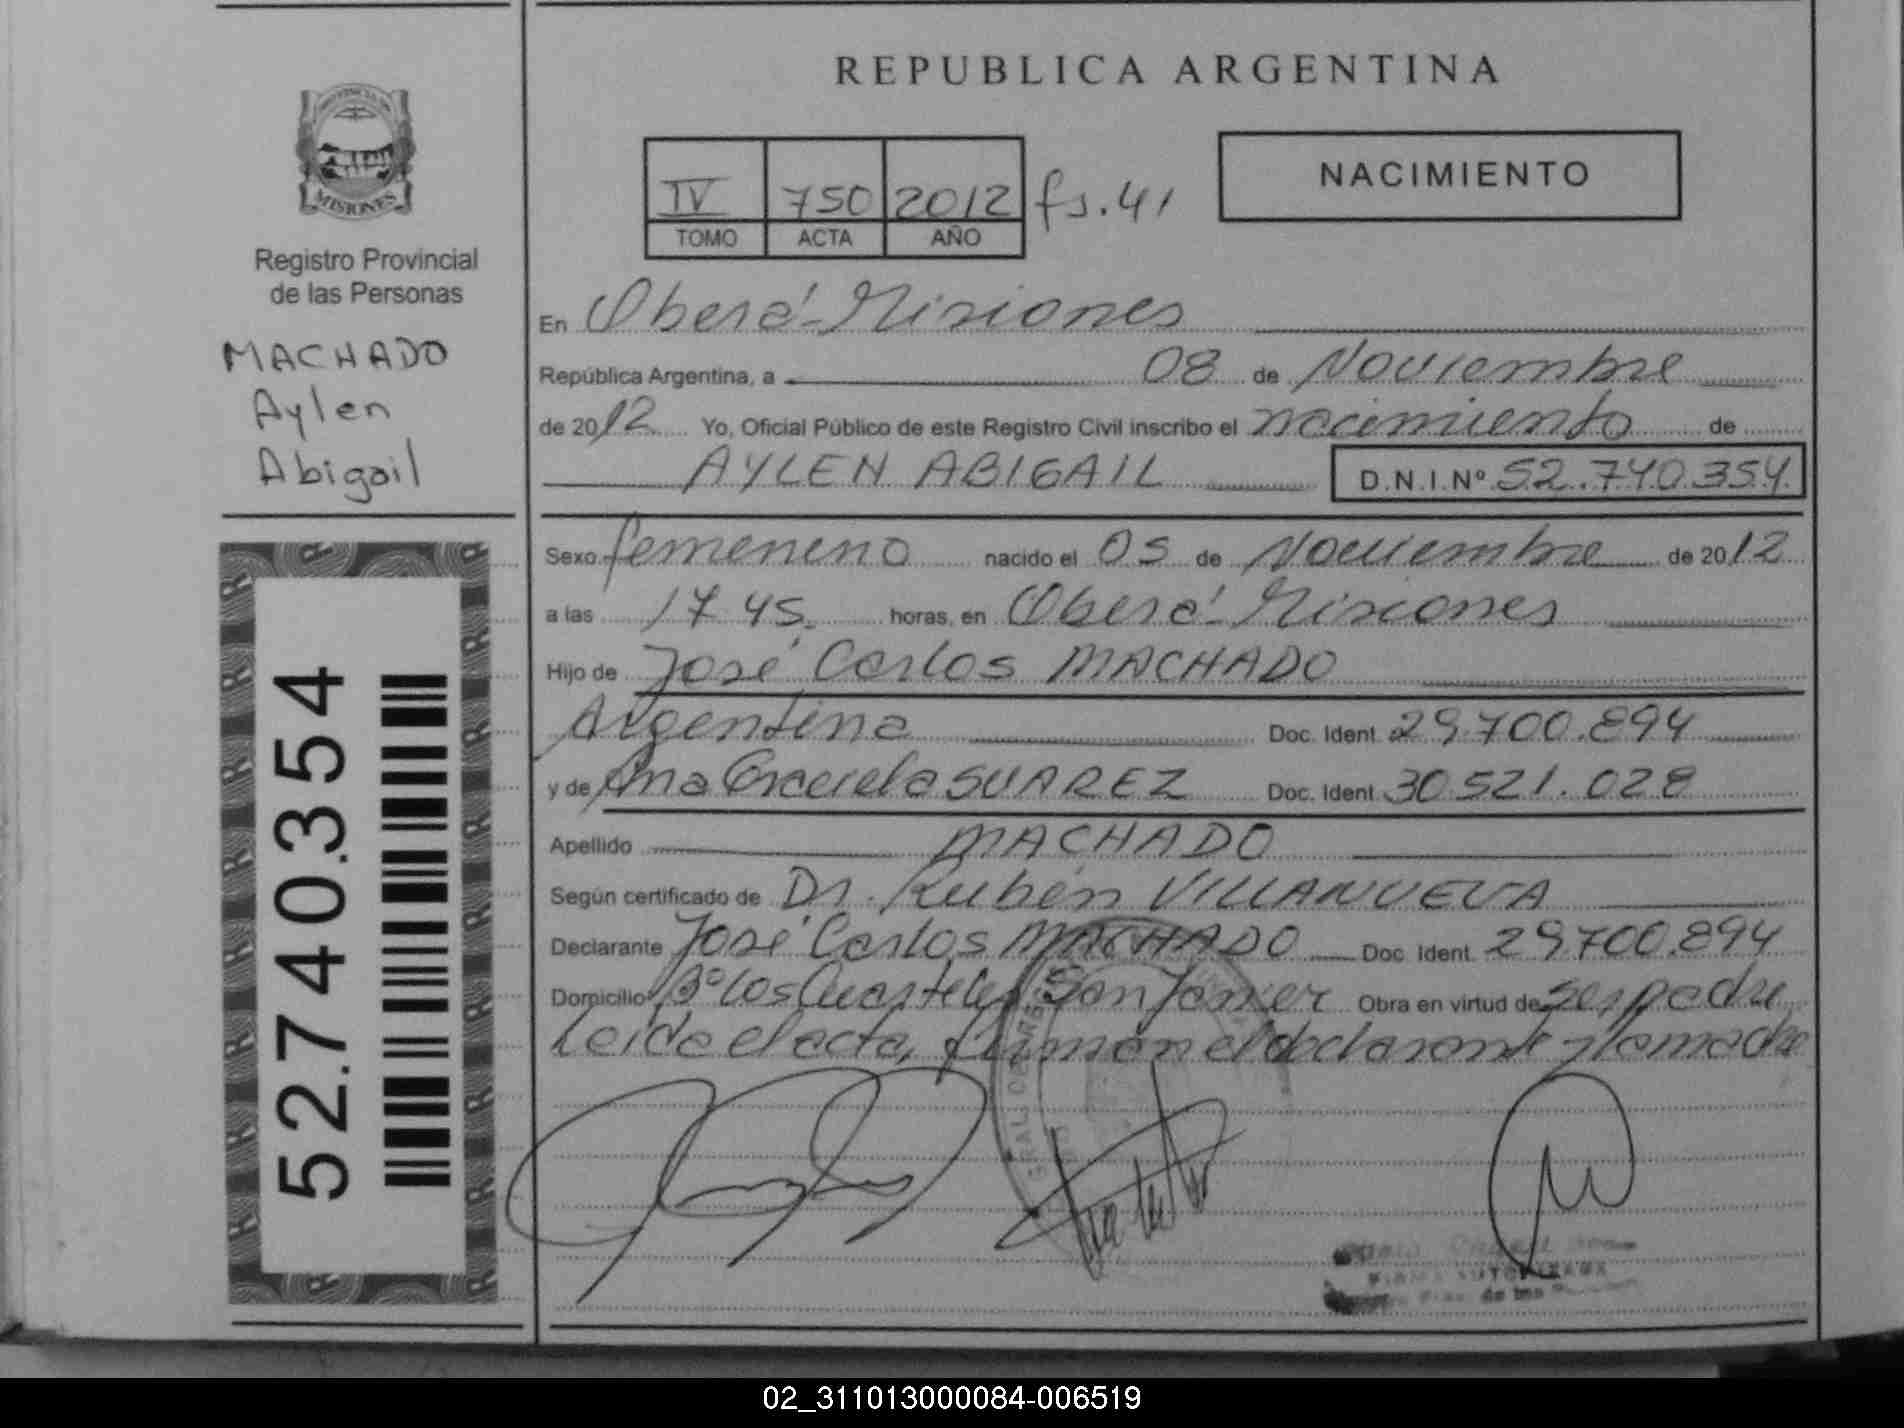 REPUBLICA ARGENTINA
PROVINCIA DE
MISIONES
Registro Provincial
de las Personas
MACHADO
Aylen
Abigail
IV 750 2012 fs.41
TOMO ACTA AÑO
NACIMIENTO
En Oberá-Misiones
República Argentina, a 08 de Noviembre
de 2012 Yo, Oficial Público de este Registro Civil inscribo el nacimiento de
AYLEN ABIGAIL D.N.I.Nº 52.740.354
Sexo femenino nacido el 05 de Noviembre de 2012
a las 17 45 horas, en Oberá-Misiones
Hijo de José Carlos MACHADO
Argentina Doc. Ident. 29.700.894
y de Ana Graciela SUAREZ Doc. Ident. 30.521.028
Apellido MACHADO
Según certificado de Dr. Rubén VILLANUEVA
Declarante José Carlos MACHADO Doc. Ident. 29.700.894
Domicilio Bº Los Cuarteles San Javier Obra en virtud de ser padre
Leída el acta, firman el declarante y la madre
52.740.354
FIRMA AUTORIZADA
02_311013000084-006519